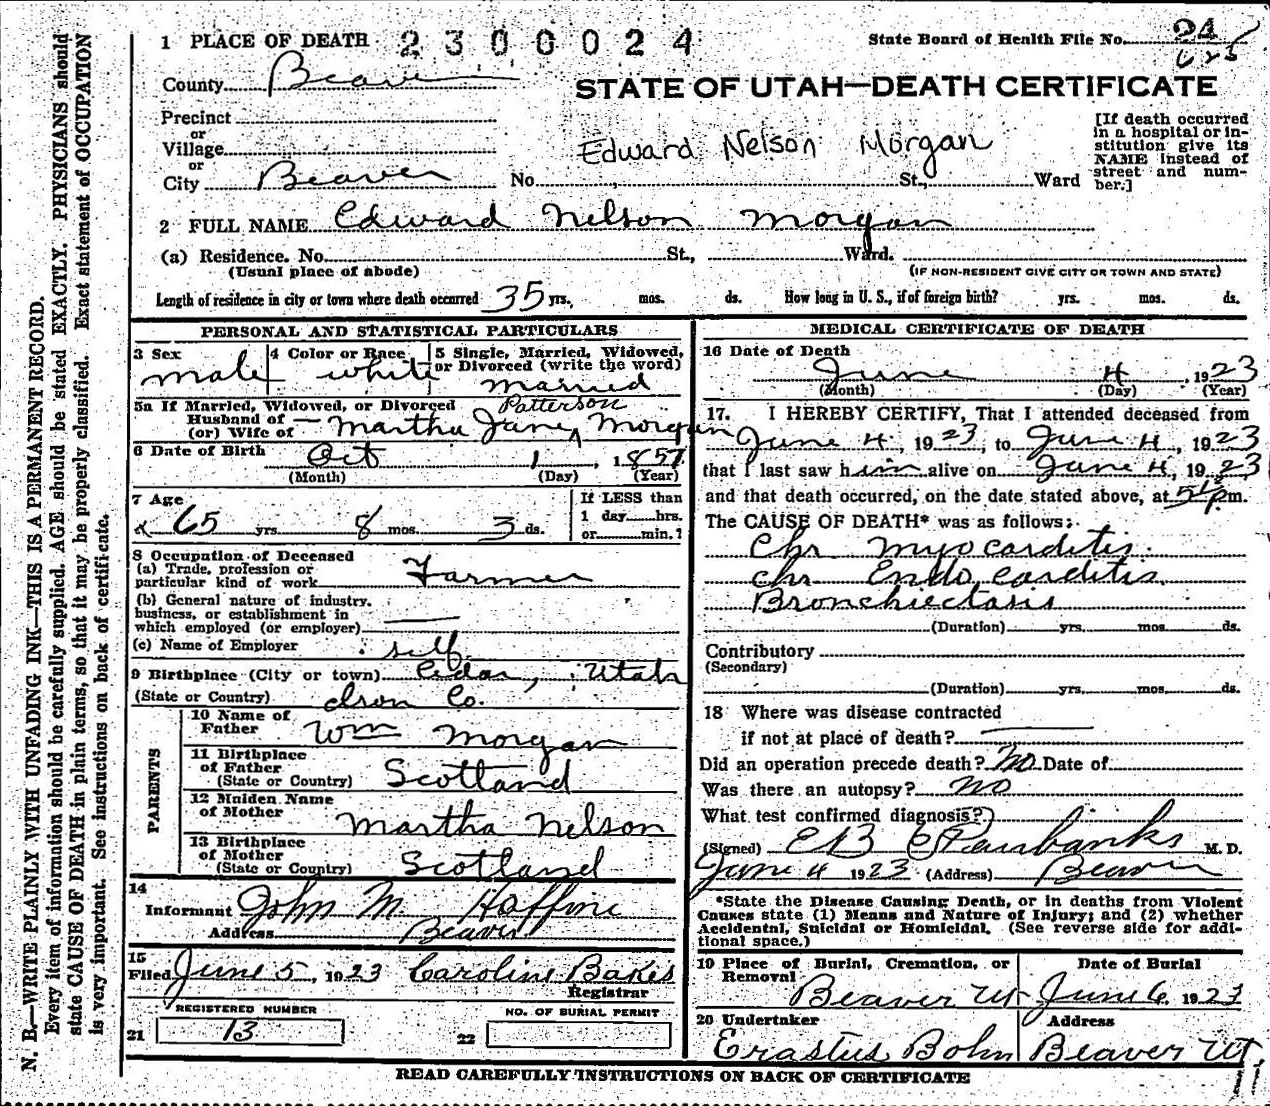 1 PLACE OF DEATH 2300024 State Board of Health File No. 24
County Beaver STATE OF UTAH—DEATH CERTIFICATE
Precinct
or
Village
or
City Beaver No. St., Ward
[If death occurred in a hospital or in-
stitution give its
NAME instead of
street and num-
ber.]
Edward Nelson Morgan
2 FULL NAME Edward Nelson Morgan
(a) Residence. No. St., Ward.
(Usual place of abode) (IF NON-RESIDENT GIVE CITY OR TOWN AND STATE)
Length of residence in city or town where death occurred 35 yrs. mos. ds. How long in U. S., if of foreign birth? yrs. mos. ds.
PERSONAL AND STATISTICAL PARTICULARS
3 Sex 4 Color or Race 5 Single, Married, Widowed,
or Divorced (write the word)
male white married
5a If Married, Widowed, or Divorced Patterson
Husband of
(or) Wife of — Martha Jane ^ Morgan
6 Date of Birth Oct 1, 1857
(Month) (Day) (Year)
7 Age If LESS than
65 yrs. 8 mos. 3 ds. 1 day hrs.
or min.?
8 Occupation of Deceased
(a) Trade, profession or
particular kind of work Farmer
(b) General nature of industry.
business, or establishment in
which employed (or employer)
(c) Name of Employer self
9 Birthplace (City or town) Cedar, Utah
(State or Country) Iron Co.
PARENTS
10 Name of
Father Wm Morgan
11 Birthplace
of Father
(State or Country) Scotland
12 Maiden Name
of Mother Martha Nelson
13 Birthplace
of Mother
(State or Country) Scotland
14
Informant John M.
Address Beaver
15
Filed June 5, 1923 Caroline Bakes
Registrar
REGISTERED NUMBER NO. OF BURIAL PERMIT
21 13 22
MEDICAL CERTIFICATE OF DEATH
16 Date of Death
June 4, 1923
(Month) (Day) (Year)
17. I HEREBY CERTIFY, That I attended deceased from
June 4, 1923, to June 4, 1923
that I last saw him alive on June 4, 1923
and that death occurred, on the date stated above, at m.
The CAUSE OF DEATH* was as follows:
Chr Myocarditis.
chr Endocarditis.
Bronchiectasis
(Duration) yrs. mos. ds.
Contributory
(Secondary)
(Duration) yrs. mos. ds.
18 Where was disease contracted
if not at place of death?
Did an operation precede death? No Date of
Was there an autopsy? no
What test confirmed diagnosis?
(Signed) Fairbanks M. D.
June 4 1923 (Address) Beaver
*State the Disease Causing Death, or in deaths from Violent
Causes state (1) Means and Nature of Injury; and (2) whether
Accidental, Suicidal or Homicidal. (See reverse side for addi-
tional space.)
19 Place of Burial, Cremation, or
Removal Date of Burial
Beaver Ut June 6, 1923
20 Undertaker Address
Erastus Bohn Beaver Ut.
READ CAREFULLY INSTRUCTIONS ON BACK OF CERTIFICATE
N. B.—WRITE PLAINLY WITH UNFADING INK—THIS IS A PERMANENT RECORD.
Every item of information should be carefully supplied. AGE should be stated EXACTLY. PHYSICIANS should
state CAUSE OF DEATH in plain terms, so that it may be properly classified. Exact statement of OCCUPATION
is very important. See instructions on back of certificate.